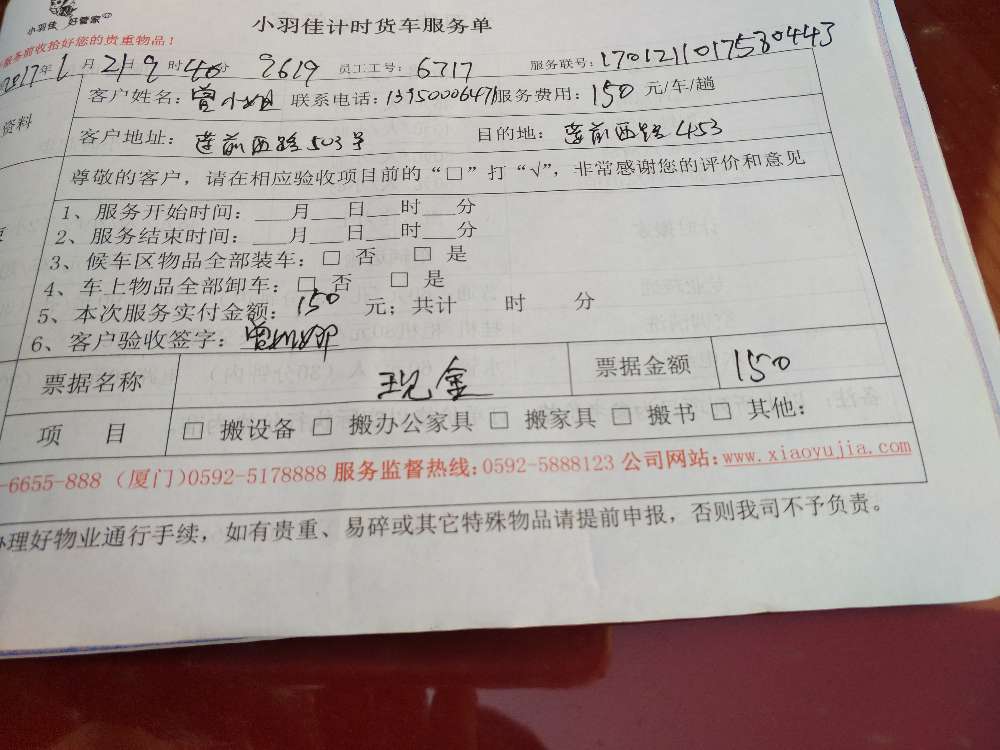 小羽佳 好管家
小羽佳计时货车服务单
服务前收拾好您的贵重物品！
2017年1月21日9时40分 9619 员工工号：6717 服务联号：17012110175830443
资料
客户姓名：曾小姐 联系电话：13950006471 服务费用：150 元/车/趟
客户地址：莲前西路503号 目的地：莲前西路453
尊敬的客户，请在相应验收项目前的“□”打“√”，非常感谢您的评价和意见
1、服务开始时间：___月___日___时___分
2、服务结束时间：___月___日___时___分
3、候车区物品全部装车：□ 否 □ 是
4、车上物品全部卸车：□ 否 □ 是
5、本次服务实付金额：150 元；共计 时 分
6、客户验收签字：
票据名称 现金 票据金额 150
项 目 □ 搬设备 □ 搬办公家具 □ 搬家具 □ 搬书 □ 其他：
-6655-888（厦门）0592-5178888 服务监督热线：0592-5888123 公司网站：www.xiaoyujia.com
办理好物业通行手续，如有贵重、易碎或其它特殊物品请提前申报，否则我司不予负责。